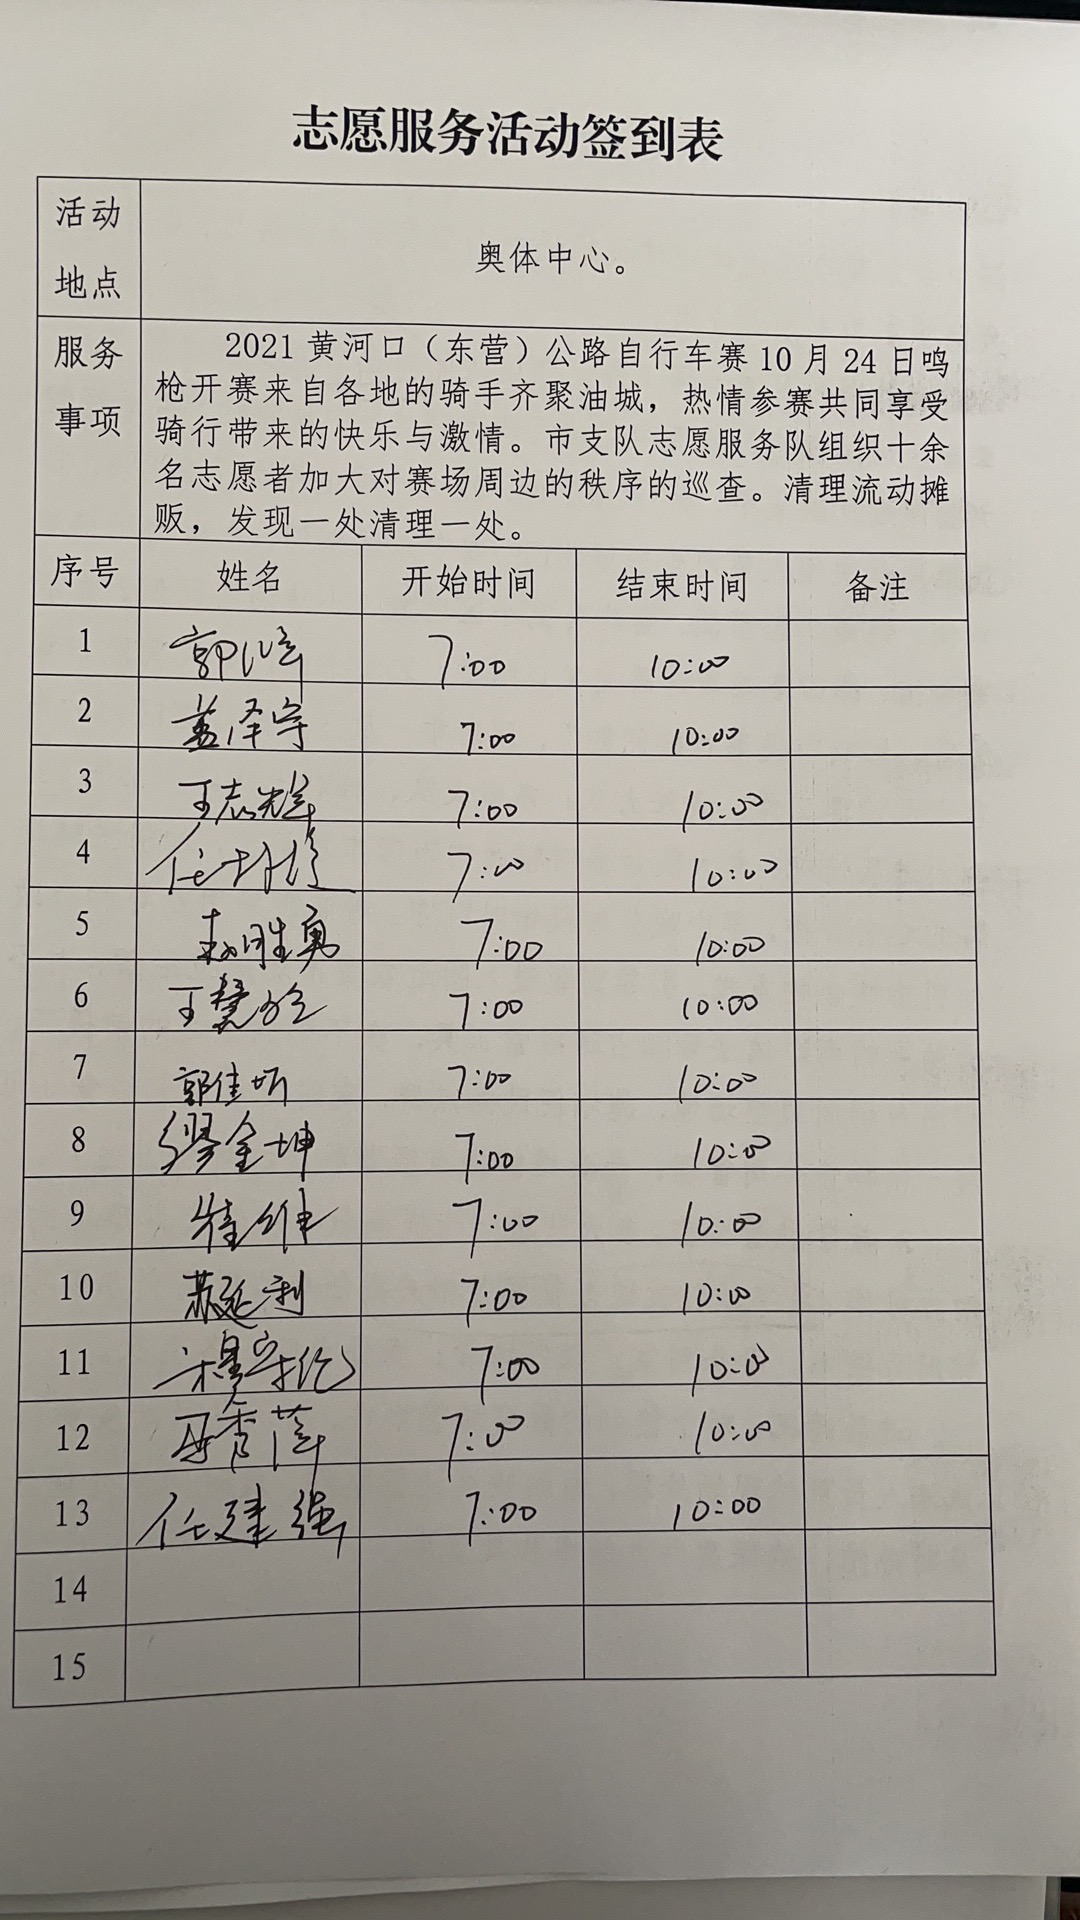 志愿服务活动签到表
活动地点
奥体中心。
服务事项
2021黄河口（东营）公路自行车赛10月24日鸣
枪开赛来自各地的骑手齐聚油城，热情参赛共同享受
骑行带来的快乐与激情。市支队志愿服务队组织十余
名志愿者加大对赛场周边的秩序的巡查。清理流动摊
贩，发现一处清理一处。
序号 姓名 开始时间 结束时间 备注
1 7:00 10:00
2 盖泽宇 7:00 10:00
3 王志辉 7:00 10:00
4 7:00 10:00
5 赵胜勇 7:00 10:00
6 7:00 10:00
7 郭佳昕 7:00 10:00
8 缪金坤 7:00 10:00
9 7:00 10:00
10 苏延利 7:00 10:00
11 7:00 10:00
12 7:00 10:00
13 任建强 7:00 10:00
14
15